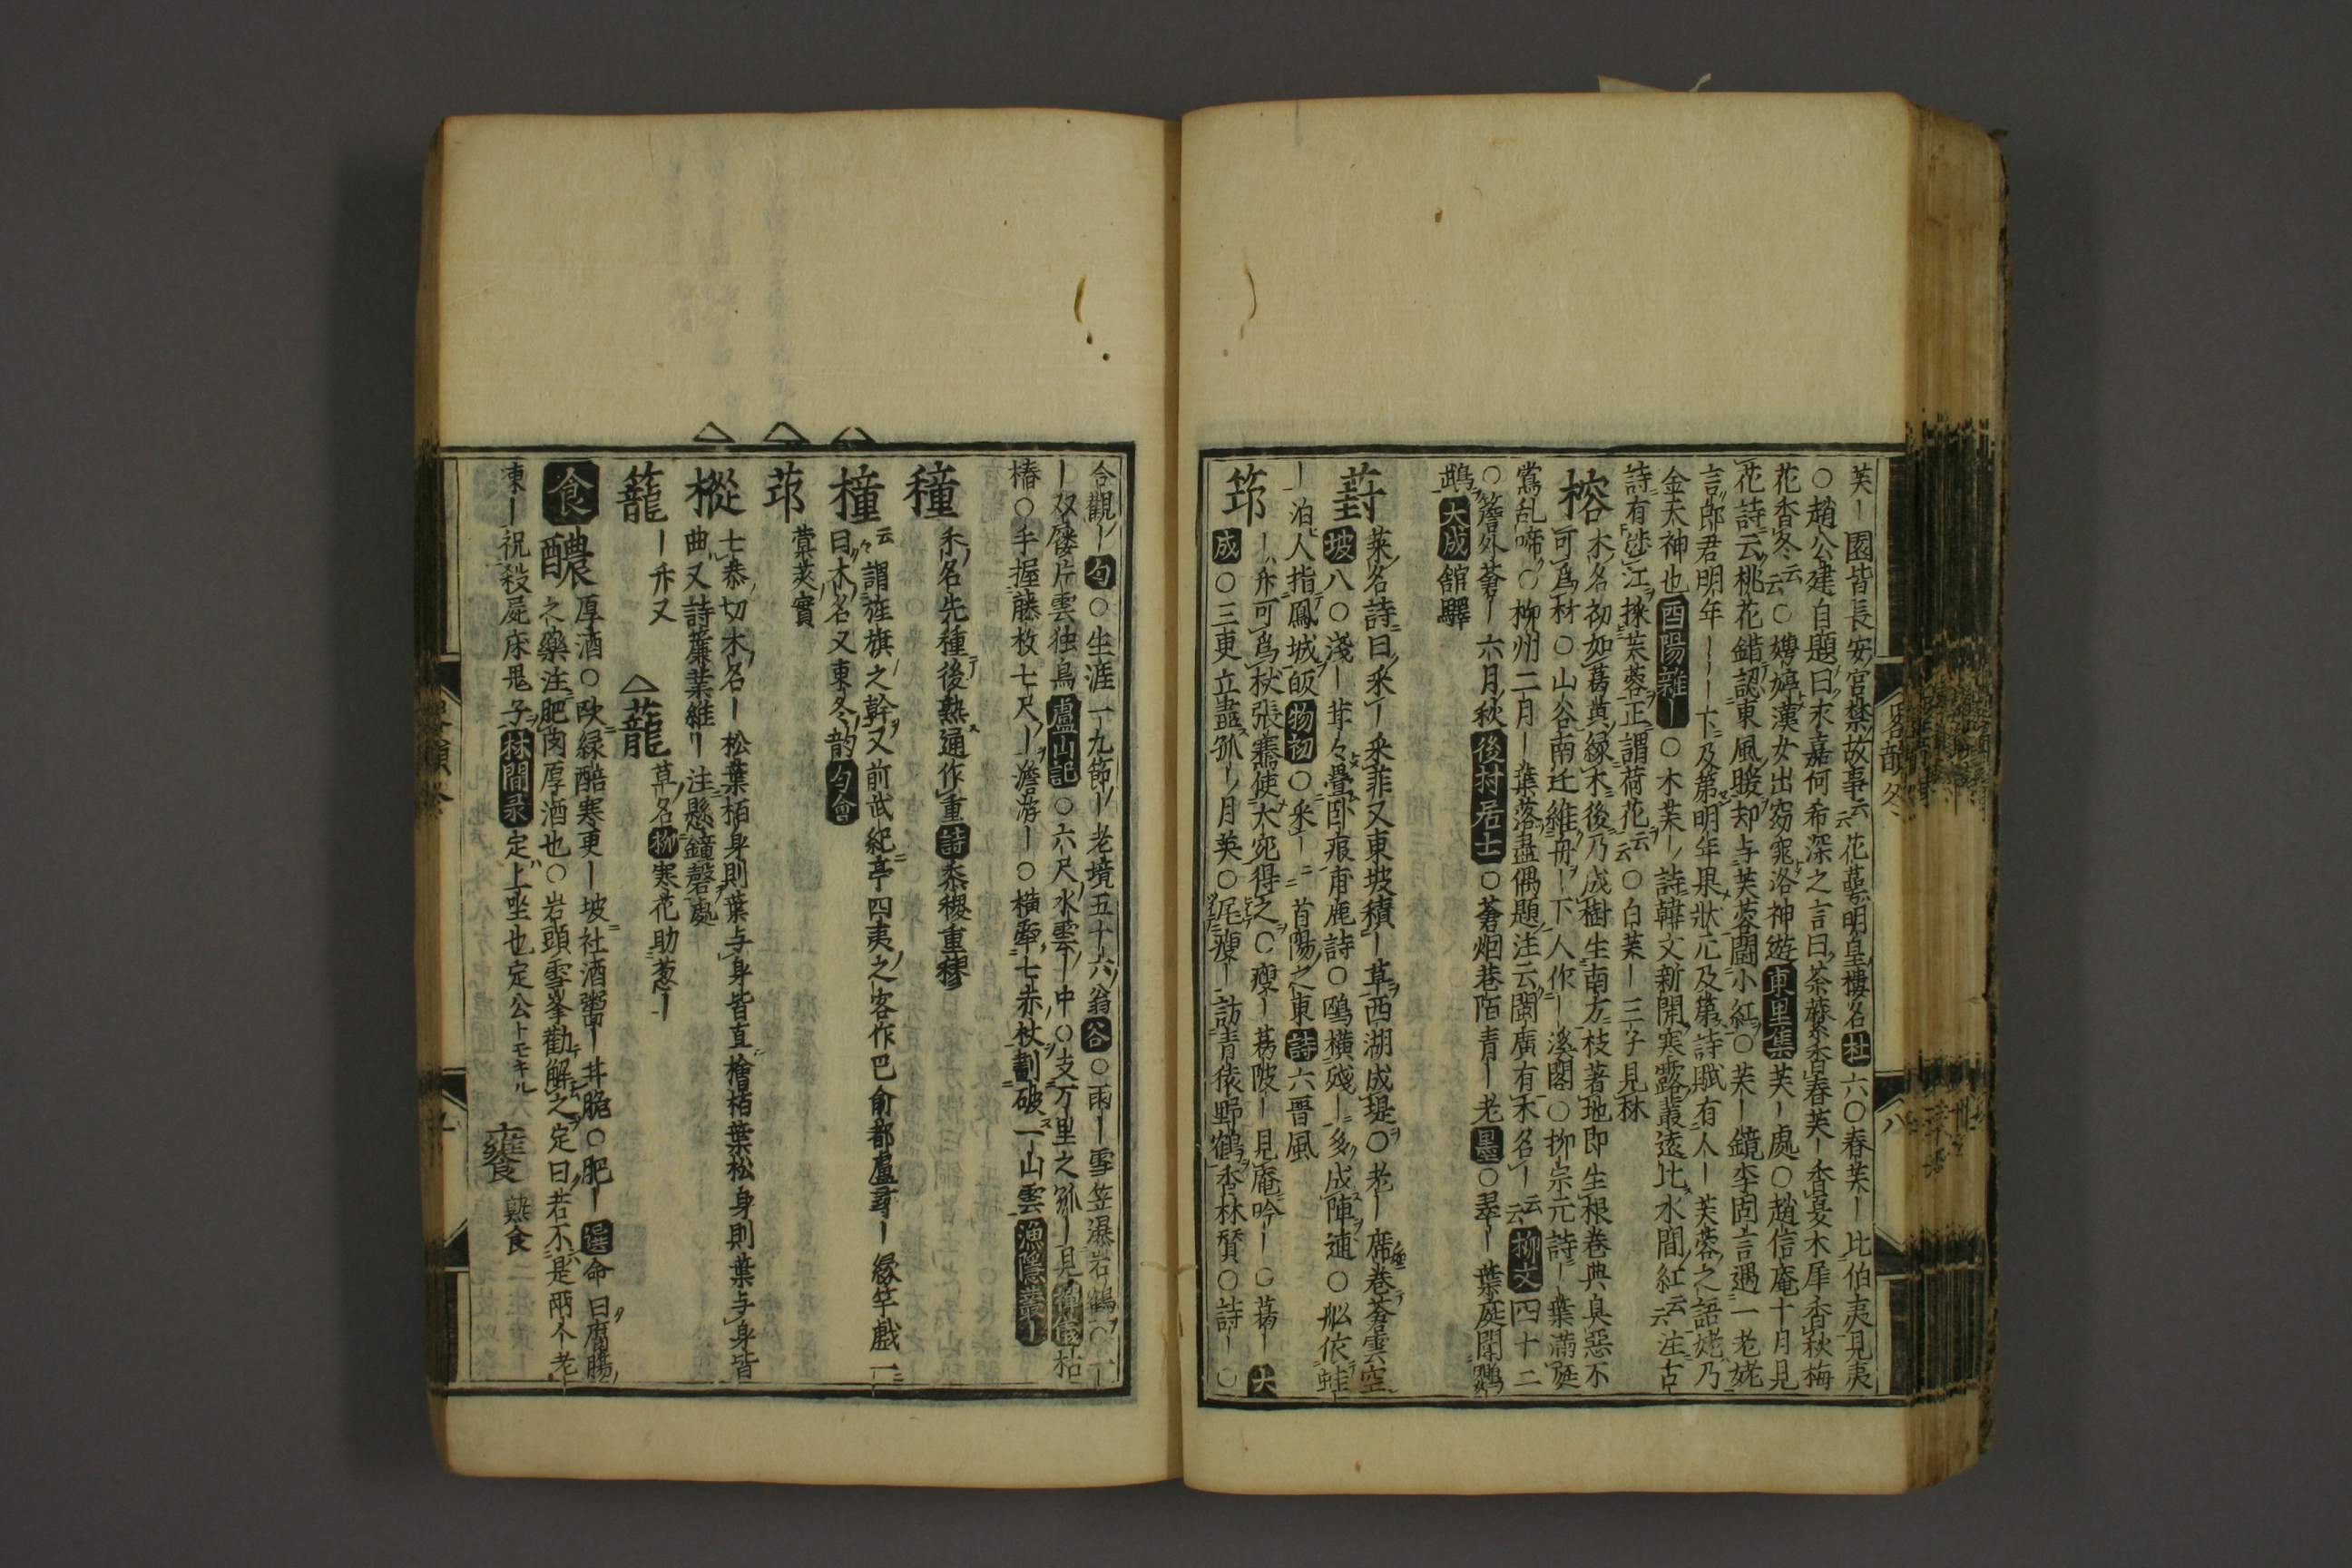 芙ー園皆長安宮禁故事云花蕚明皇樓名杜六〇春芙ー比伯夷見夷
〇趙公建自題曰木嘉何希深之言曰茶蘪香春芙ー香夏木犀香秋梅
花香冬云〇娉婷漢女出窈窕洛神遊東里集芙ー處〇趙信庵十月見
花詩云桃花錯認東風暖却与芙蓉鬪小紅〇芙ー鏡李固言遇一老姥
言郎君明年ーーー下及第明年果狀元及第詩賦有人ー芙蓉之語姥乃
金天神也酉陽雜ー〇木芙ー詩韓文新開寒露叢遠比水間紅云注古
詩有涉江採芙蓉正謂荷花云〇白芙ー三字見林
榕木名初如葛黄緑木後乃成樹生南方枝著地即生根巻典臭惡不
可爲材〇山谷南迁維舟ー下人作ー溪閣〇柳宗元詩ー葉滿庭
鴬乱啼〇柳州二月ー葉落盡偶題注云閩廣有木名ー云柳文四十二
〇簷外蒼ー六月秋後村居士〇蒼烟巷陌青ー老墨〇翠ー葉庭聞鸚
鵡大成舘驛
葑菜名詩曰采ー采菲又東坡積ー草西湖成堤〇老ー席巻蒼雲空
坡八〇淺ー茸々疊卧痕甫鹿詩〇鴎横殘ー多成陣連〇舩依蛙
ー泊人指鳳城皈物初〇采ー首陽之東詩六晋風
筇ー舟可爲杖張騫使大宛得之〇瘦ー葛陂ー見庵吟ー〇葛ー大
成〇三更立盡孤ー月英〇尼瘦ー訪青猿野鶴香林賛〇詩ー〇
合觀ー句〇生涯一九節ー老境五十六翁谷〇雨ー雪笠瀑岩鶴〇一ー
ー双屨片雲独鳥盧山記〇六尺水雲ー中〇支万里之孤ー見禅儀枯
樁〇手握藤枚七尺ー澹游ー〇横擔七赤杖劃破一山雲漁隱叢ー
穜禾名先種後熟通作重詩黍稷重穋
橦云謂旌旗之幹又前武紀亭四夷之客作巴俞都盧尋ー縁竿戯一
曰木名又東冬韵句會
茚蓂莢實
樅七恭切木名ー松葉栢身則葉与身皆直檜栢葉松身則葉与身皆
曲又詩簴業維ー注懸鐘磬處
籠ー舟又 蘢草名柳寒花助葱ー
食醲厚酒〇欧緑醅寒更ー坡社酒粥ー井脆〇肥ー選命曰腐腸
之藥注肥肉厚酒也〇岩頭雪峯勸解之定曰若不是兩个老
凍ー祝殺屍床鬼子林間录定上坐也定公トモキル 饔熟食